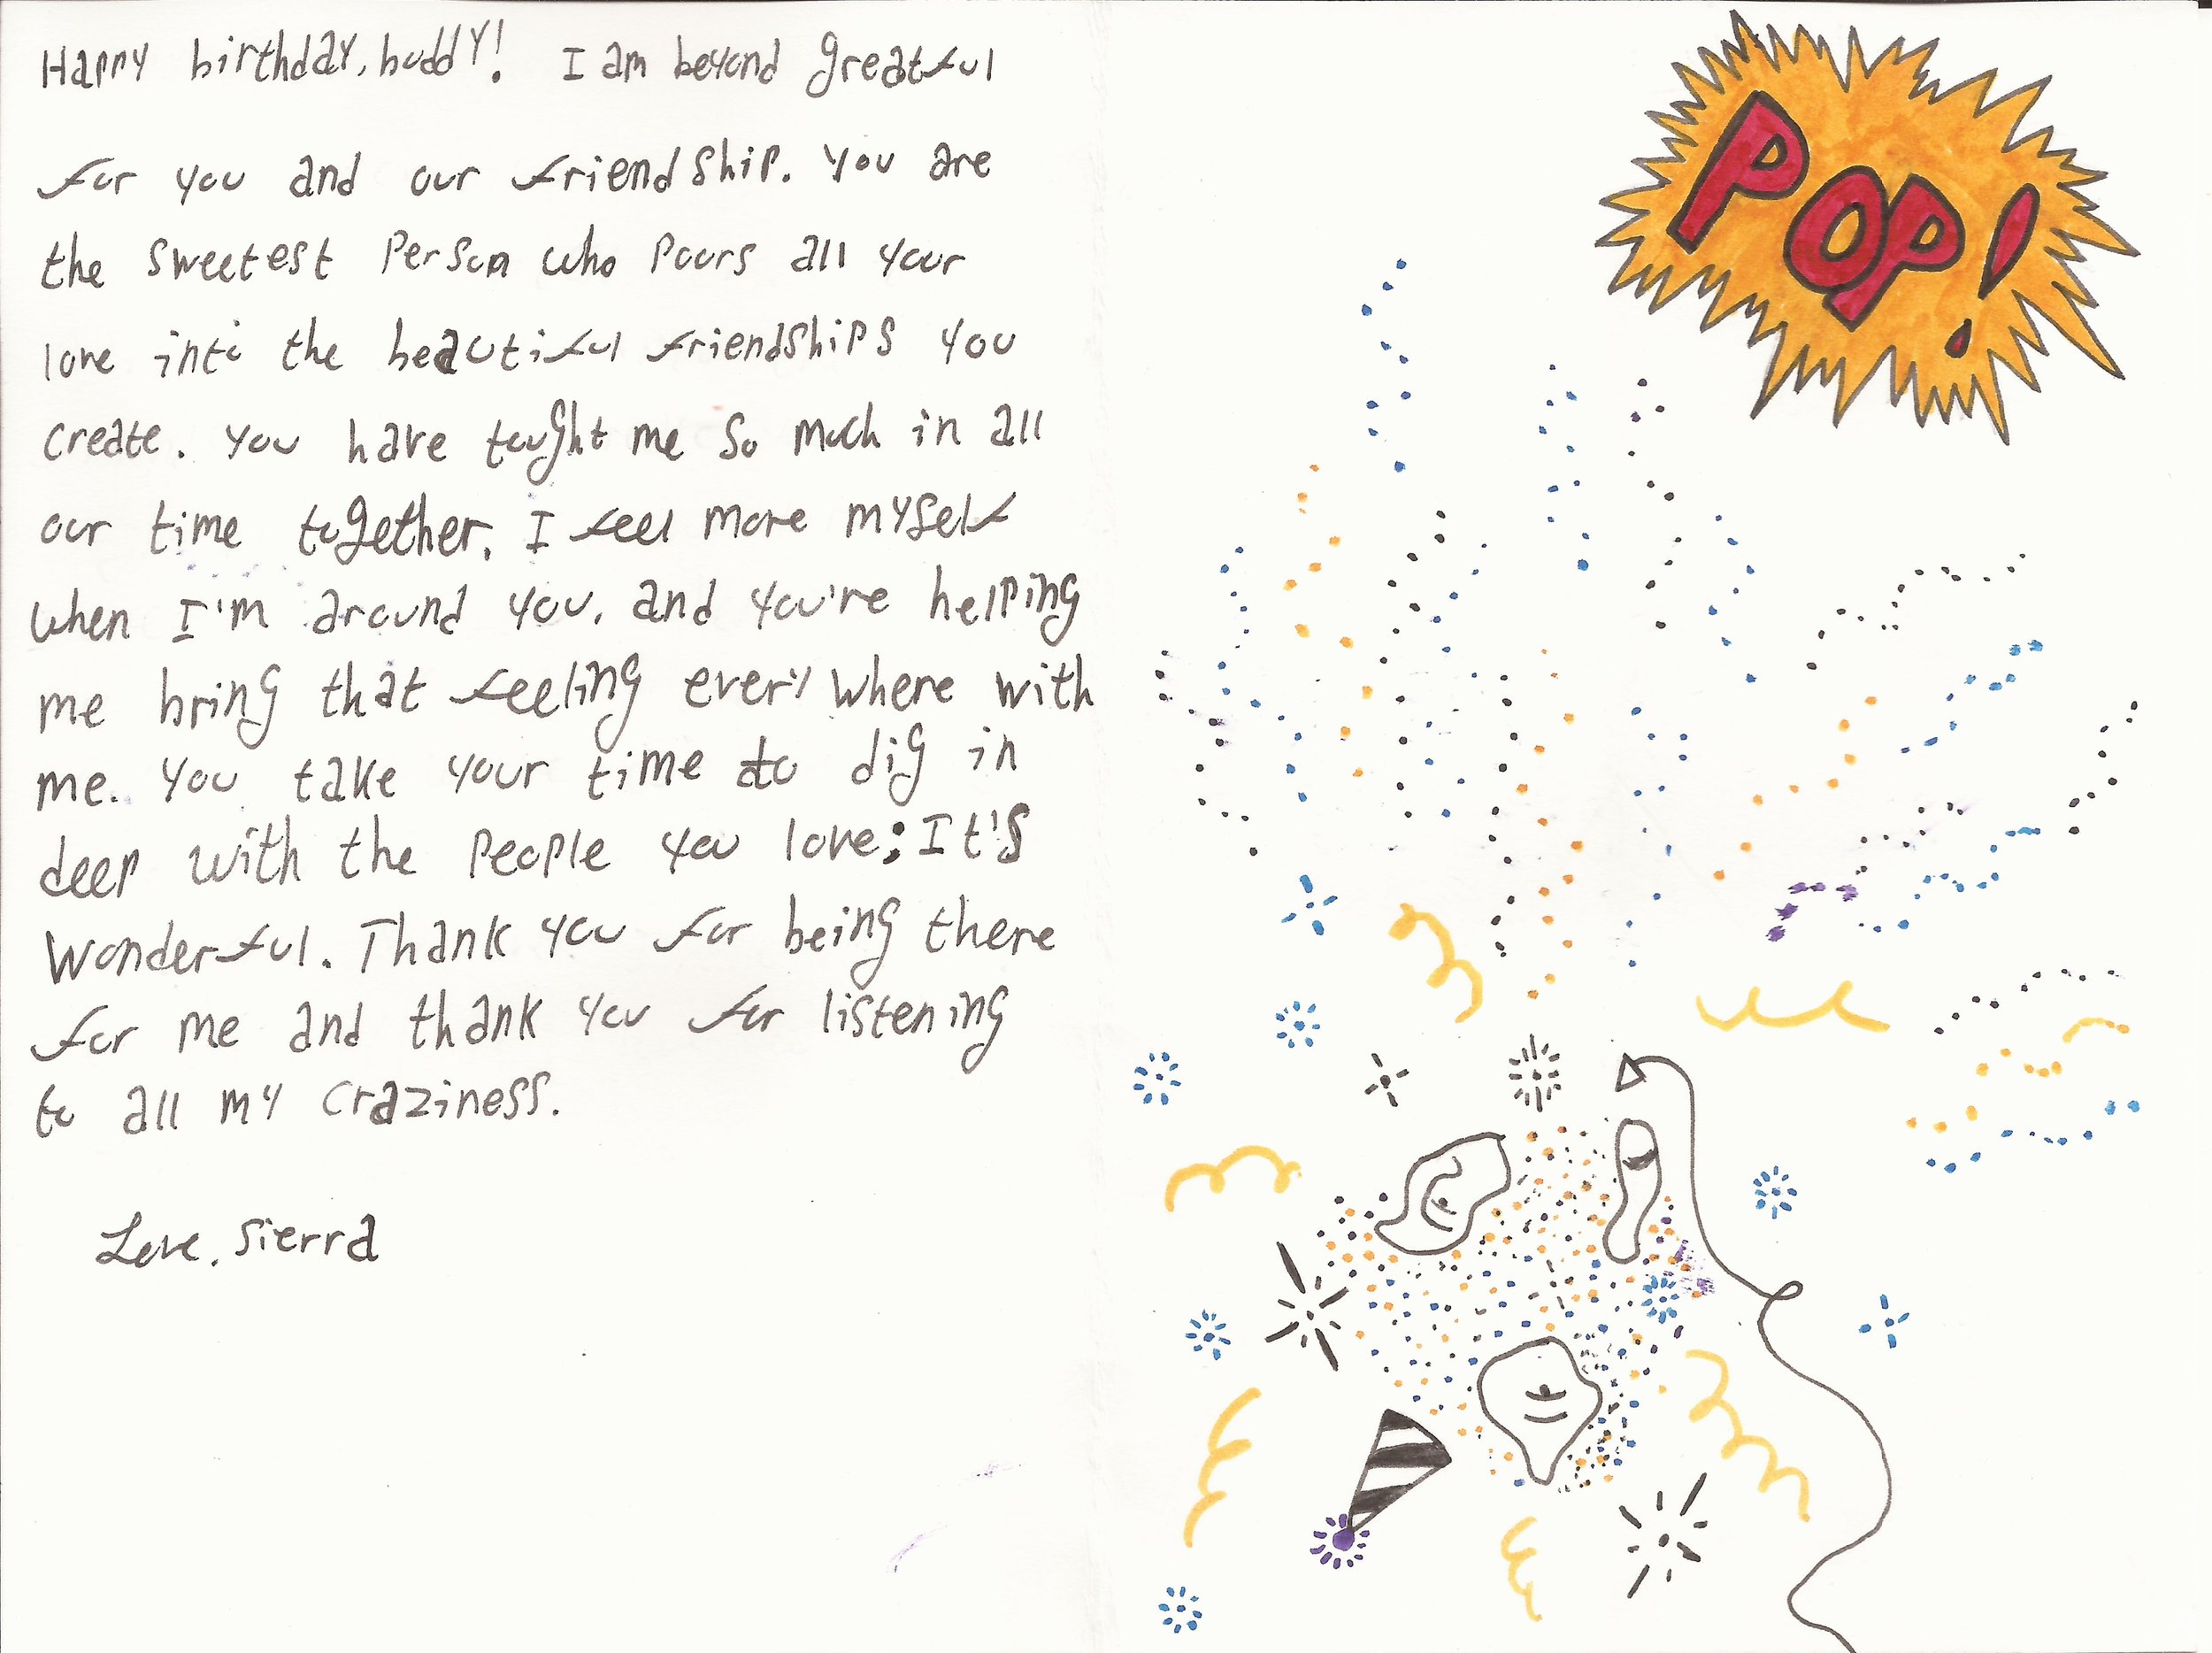 Happy birthday, buddy! I am beyond greatful
for you and our friendship. You are
the sweetest person who pours all your
love into the beautiful friendships you
create. You have tought me so much in all
our time together. I feel more myself
when I'm around you, and you're helping
me bring that feeling everywhere with
me. You take your time to dig in
deep with the people you love; It's
wonderful. Thank you for being there
for me and thank you for listening
to all my craziness.
Love, Sierra
POP!